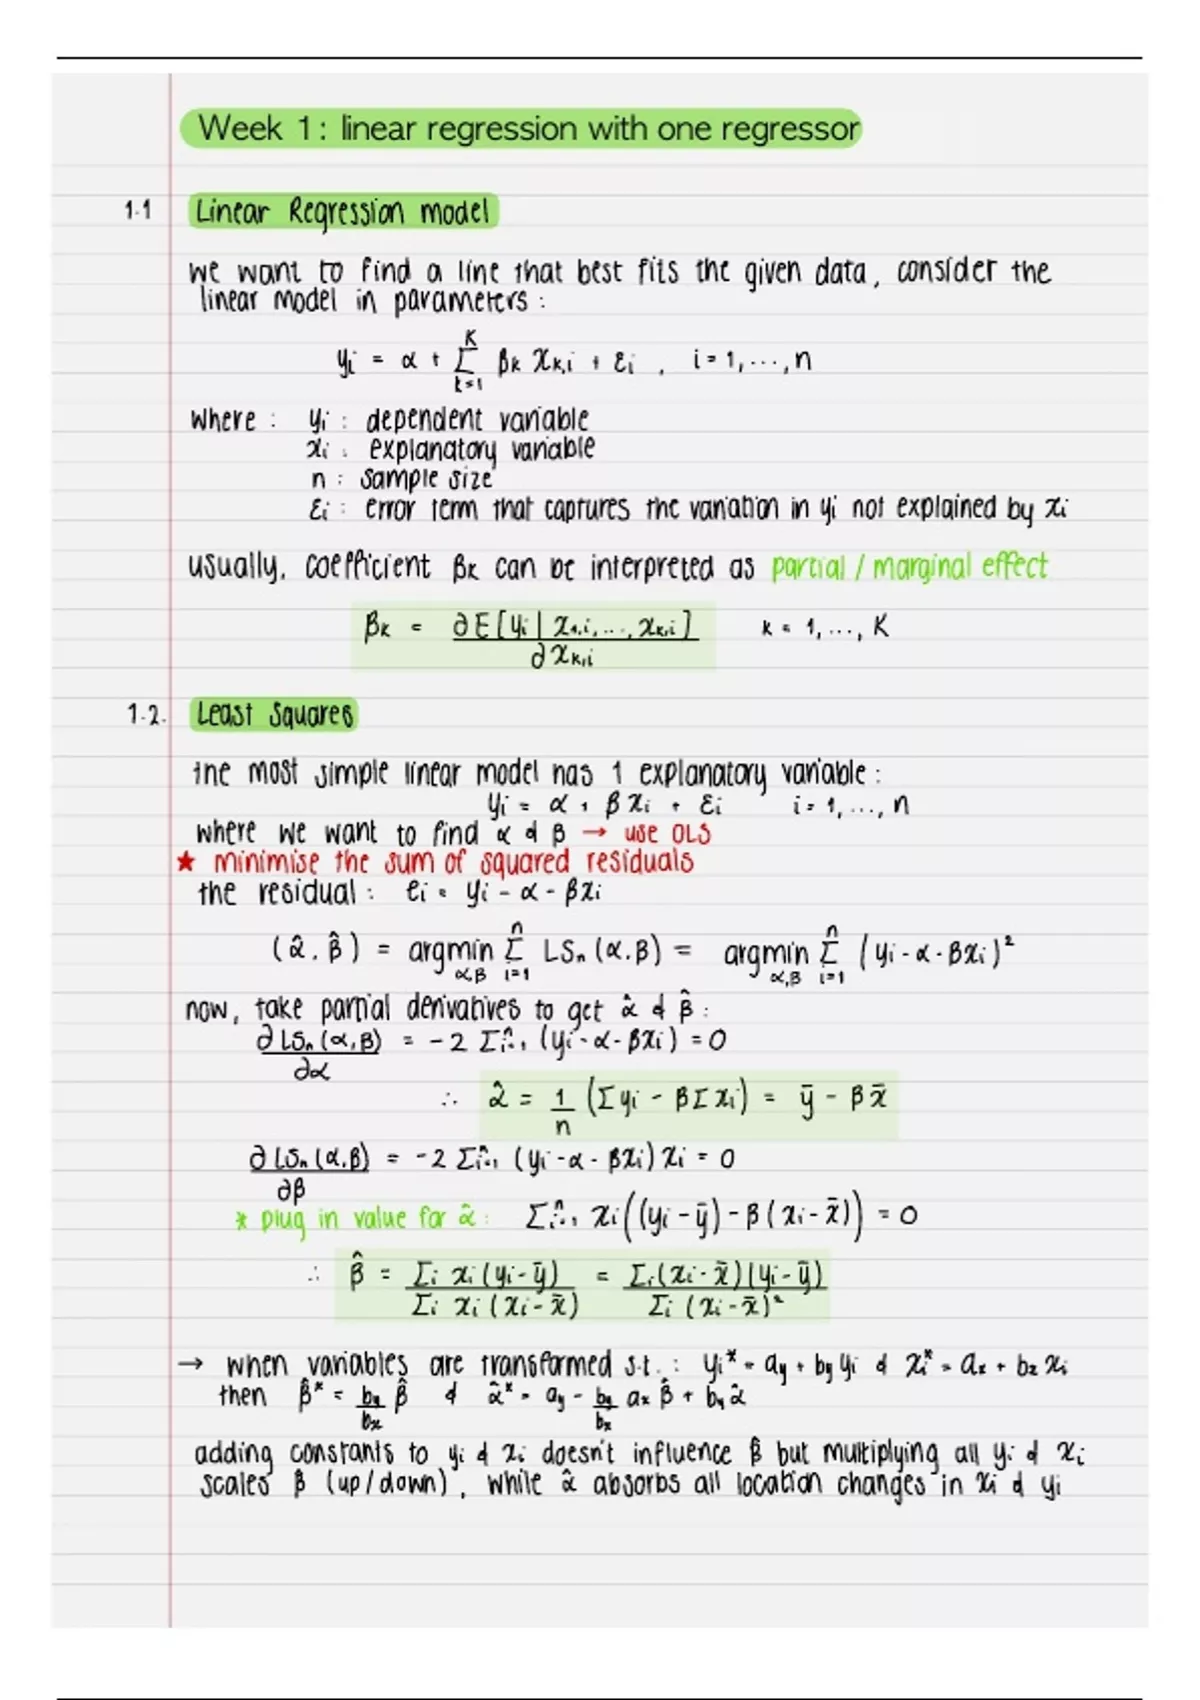 Week 1: linear regression with one regressor
1.1 Linear Regression model
we want to find a line that best fits the given data, consider the
linear model in parameters:
yᵢ = α + Σₖ₌₁ᴷ βₖ xₖ,ᵢ + εᵢ , i = 1, ..., n
where: yᵢ: dependent variable
xᵢ: explanatory variable
n: sample size
εᵢ: error term that captures the variation in yᵢ not explained by xᵢ
usually, coefficient βₖ can be interpreted as partial / marginal effect
βₖ = ∂E[yᵢ | x₁,ᵢ, ..., xₖ,ᵢ] / ∂xₖ,ᵢ k = 1, ..., K
1.2. Least Squares
the most simple linear model has 1 explanatory variable:
yᵢ = α + βxᵢ + εᵢ i = 1, ..., n
where we want to find α & β → use OLS
★ minimise the sum of squared residuals
the residual: eᵢ = yᵢ - α - βxᵢ
(α̂, β̂) = argmin α,β Σᵢ₌₁ⁿ LSₙ(α,β) = argmin α,β Σᵢ₌₁ⁿ (yᵢ - α - βxᵢ)²
now, take partial derivatives to get α̂ & β̂:
∂LSₙ(α,β) / ∂α = -2 Σᵢ₌₁ⁿ (yᵢ - α - βxᵢ) = 0
∴ α̂ = 1/n (Σyᵢ - βΣxᵢ) = ȳ - βx̄
∂LSₙ(α,β) / ∂β = -2 Σᵢ₌₁ⁿ (yᵢ - α - βxᵢ)xᵢ = 0
* plug in value for α̂: Σᵢ₌₁ⁿ xᵢ((yᵢ - ȳ) - β(xᵢ - x̄)) = 0
∴ β̂ = Σᵢ xᵢ(yᵢ - ȳ) / Σᵢ xᵢ(xᵢ - x̄) = Σᵢ(xᵢ - x̄)(yᵢ - ȳ) / Σᵢ (xᵢ - x̄)²
→ when variables are transformed s.t.: yᵢ* = a_y + b_y yᵢ & xᵢ* = aₓ + bₓ xᵢ
then β̂* = b_y/bₓ β̂ & α̂* = a_y - b_y/bₓ aₓ β̂ + b_y α̂
adding constants to yᵢ & xᵢ doesn't influence β̂ but multiplying all yᵢ & xᵢ
scales β̂ (up/down), while α̂ absorbs all location changes in xᵢ & yᵢ